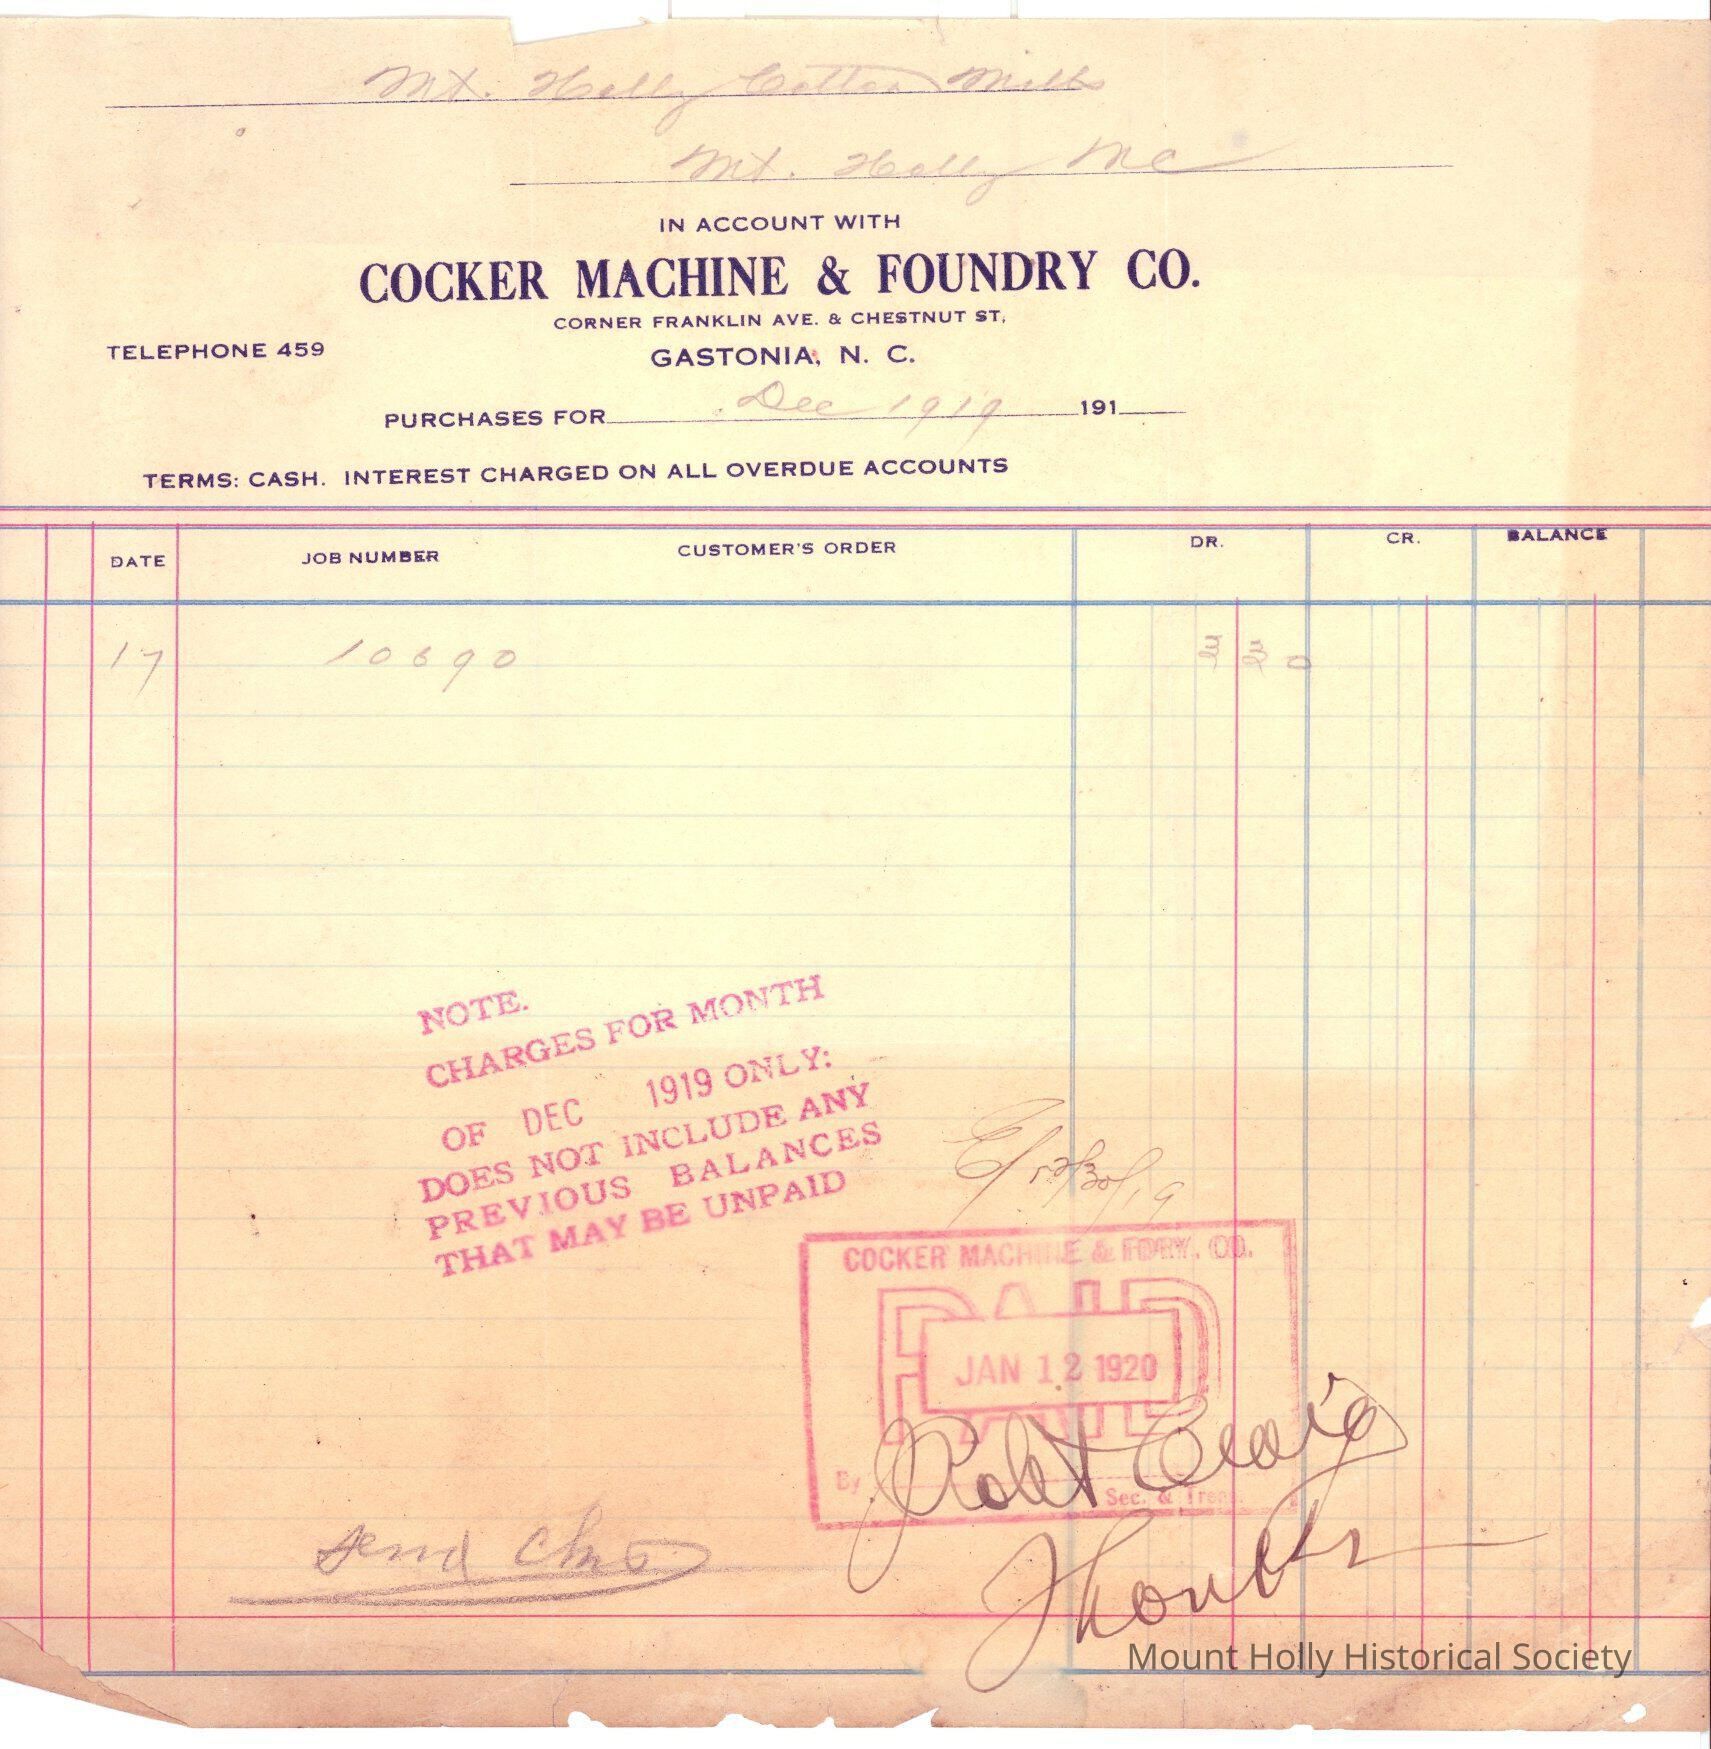 Mt. Holly Cotton Mills
Mt. Holly NC
IN ACCOUNT WITH
COCKER MACHINE & FOUNDRY CO.
CORNER FRANKLIN AVE. & CHESTNUT ST,
TELEPHONE 459
GASTONIA, N. C.
PURCHASES FOR Dec 1919 191
TERMS: CASH. INTEREST CHARGED ON ALL OVERDUE ACCOUNTS
DATE JOB NUMBER CUSTOMER'S ORDER DR. CR. BALANCE
17 10690 3 30
NOTE.
CHARGES FOR MONTH
OF DEC 1919 ONLY:
DOES NOT INCLUDE ANY
PREVIOUS BALANCES
THAT MAY BE UNPAID
COCKER MACHINE & FDRY. CO.
PAID
JAN 12 1920
By Robt Craig
Sec. & Treas.
Thanks
Send
Mount Holly Historical Society